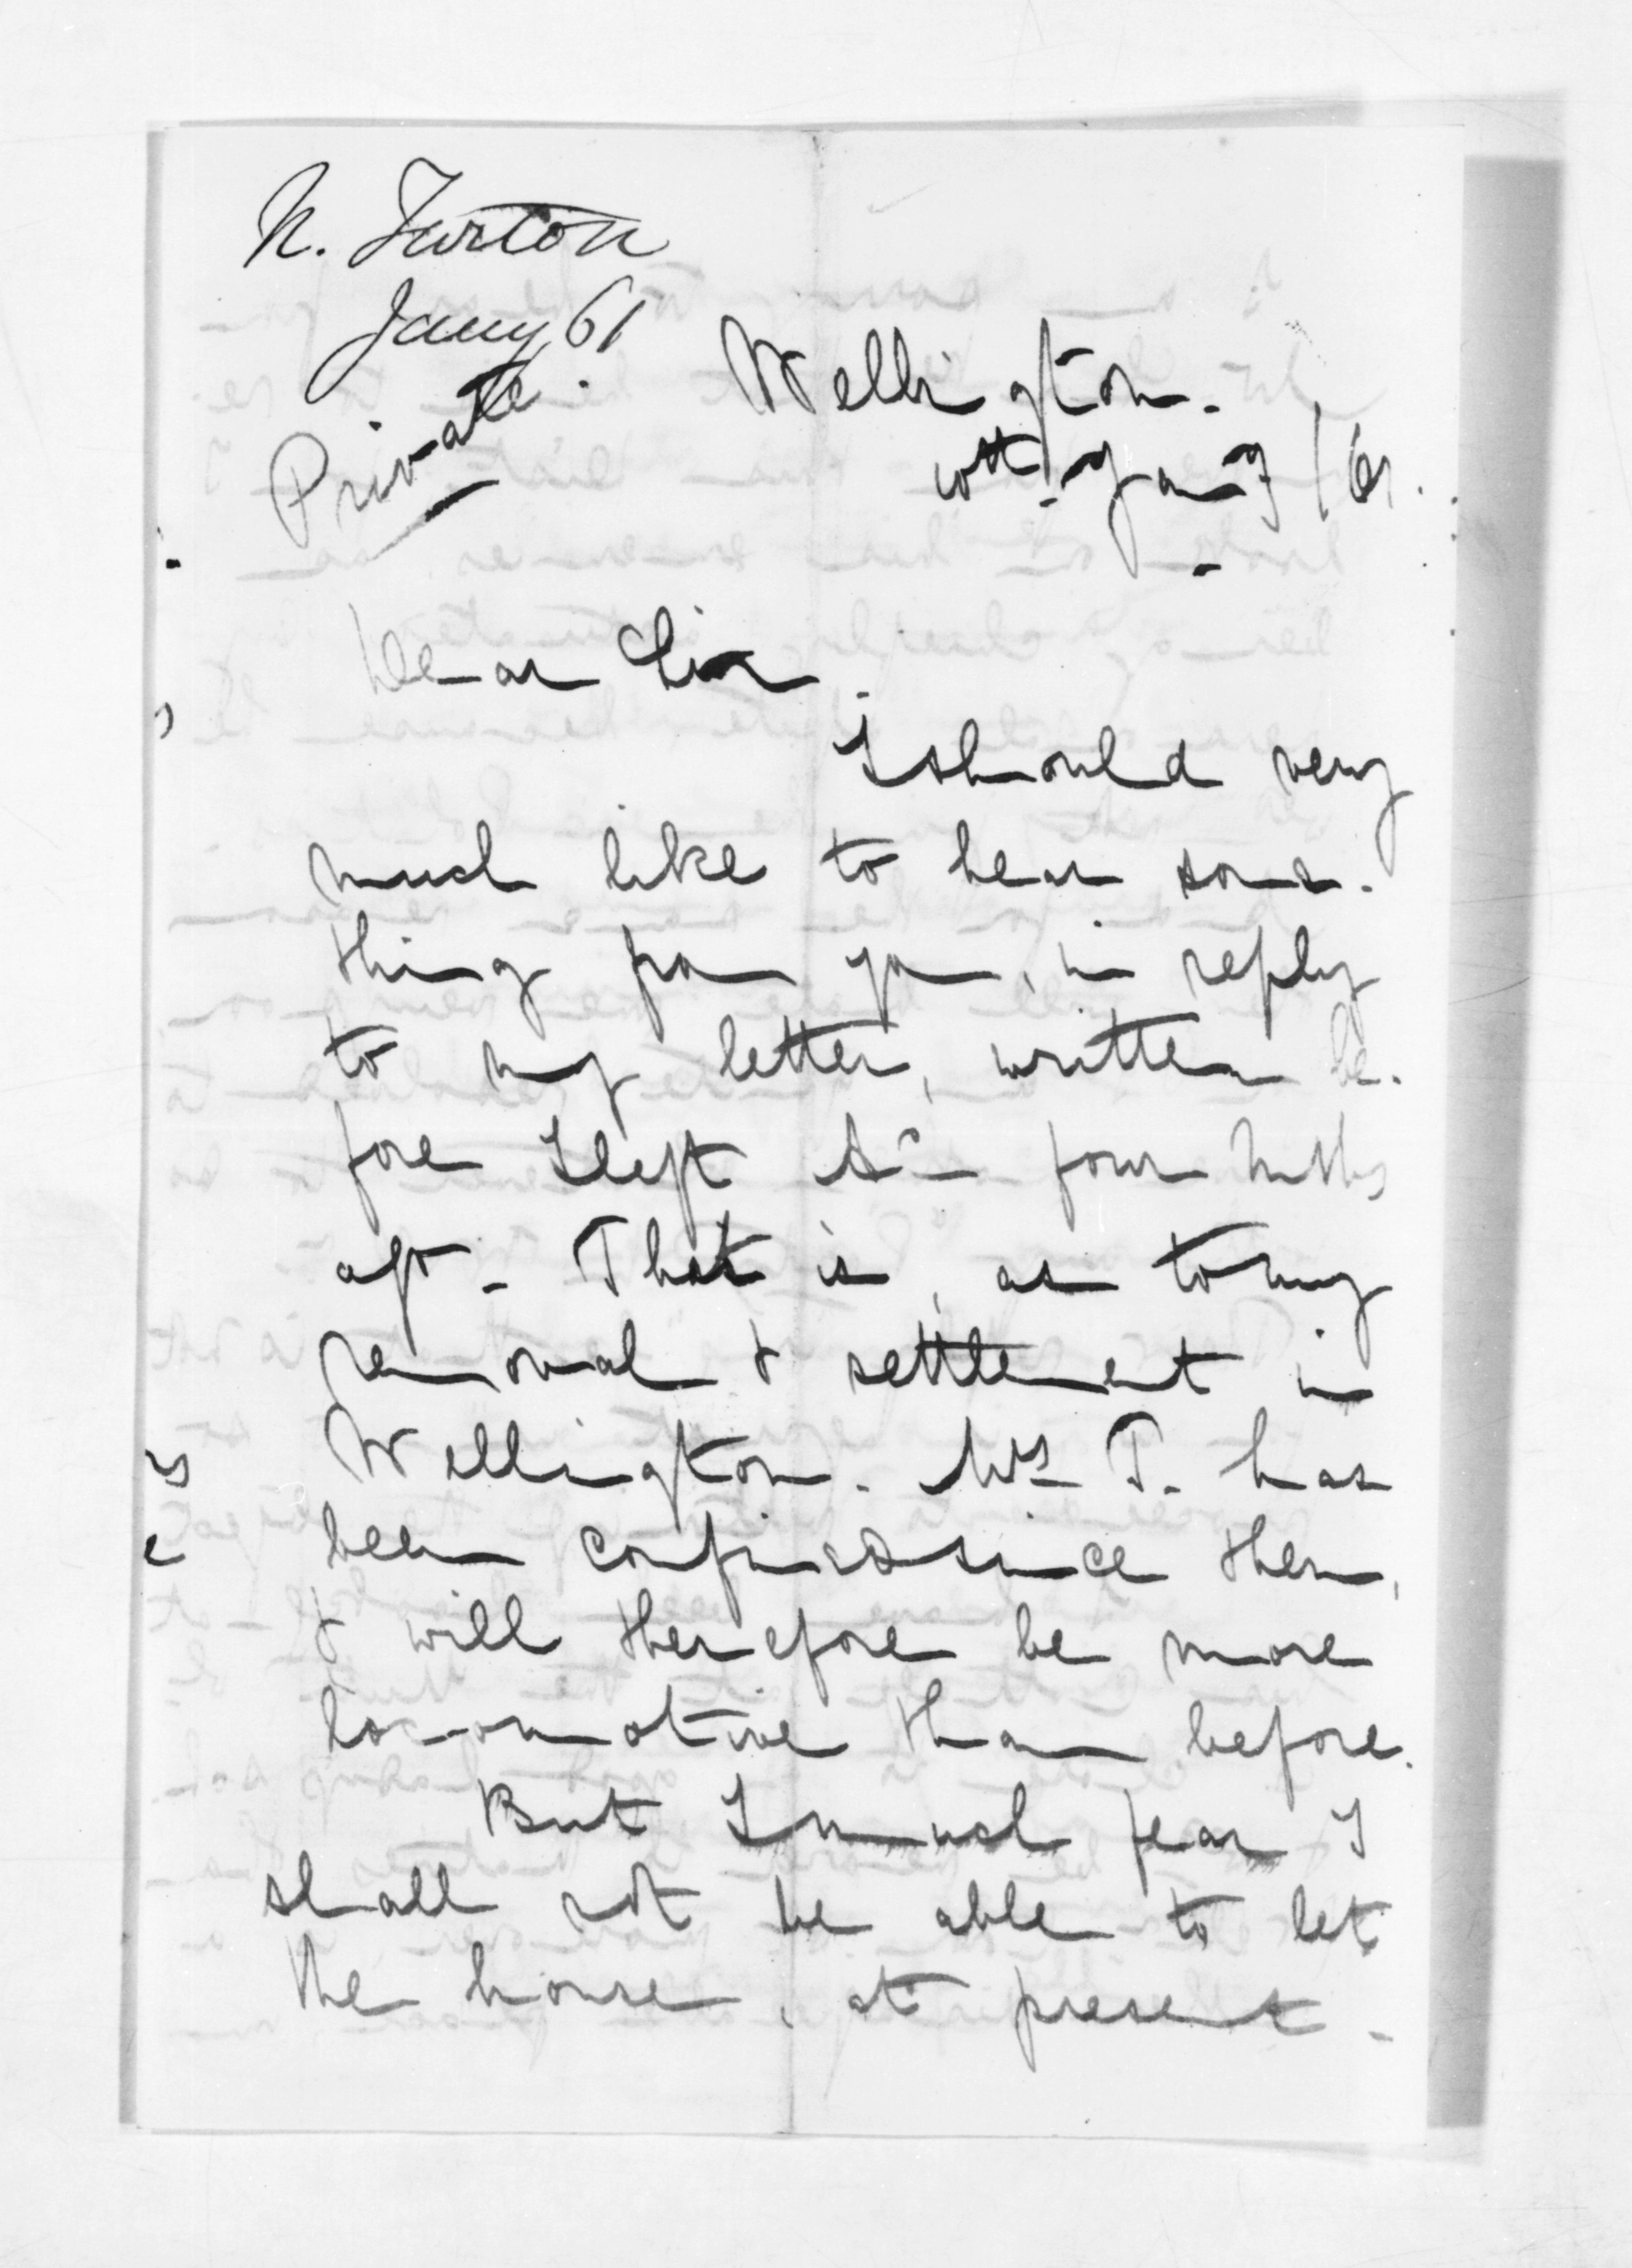 H. Turton
Jany 61
Private.
Wellington.
10th. Jany /61.
Dear Sir.
I should very
much like to hear some-
thing from you, in reply
to my letter, written be-
fore I left Ad. four mths
ago. That is, as to my
removal & settlement in
Wellington. Mrs T. has
been confined since then,
& will therefore be more
locomotive than before.
But I much fear I
shall not be able to let
the house, at present.